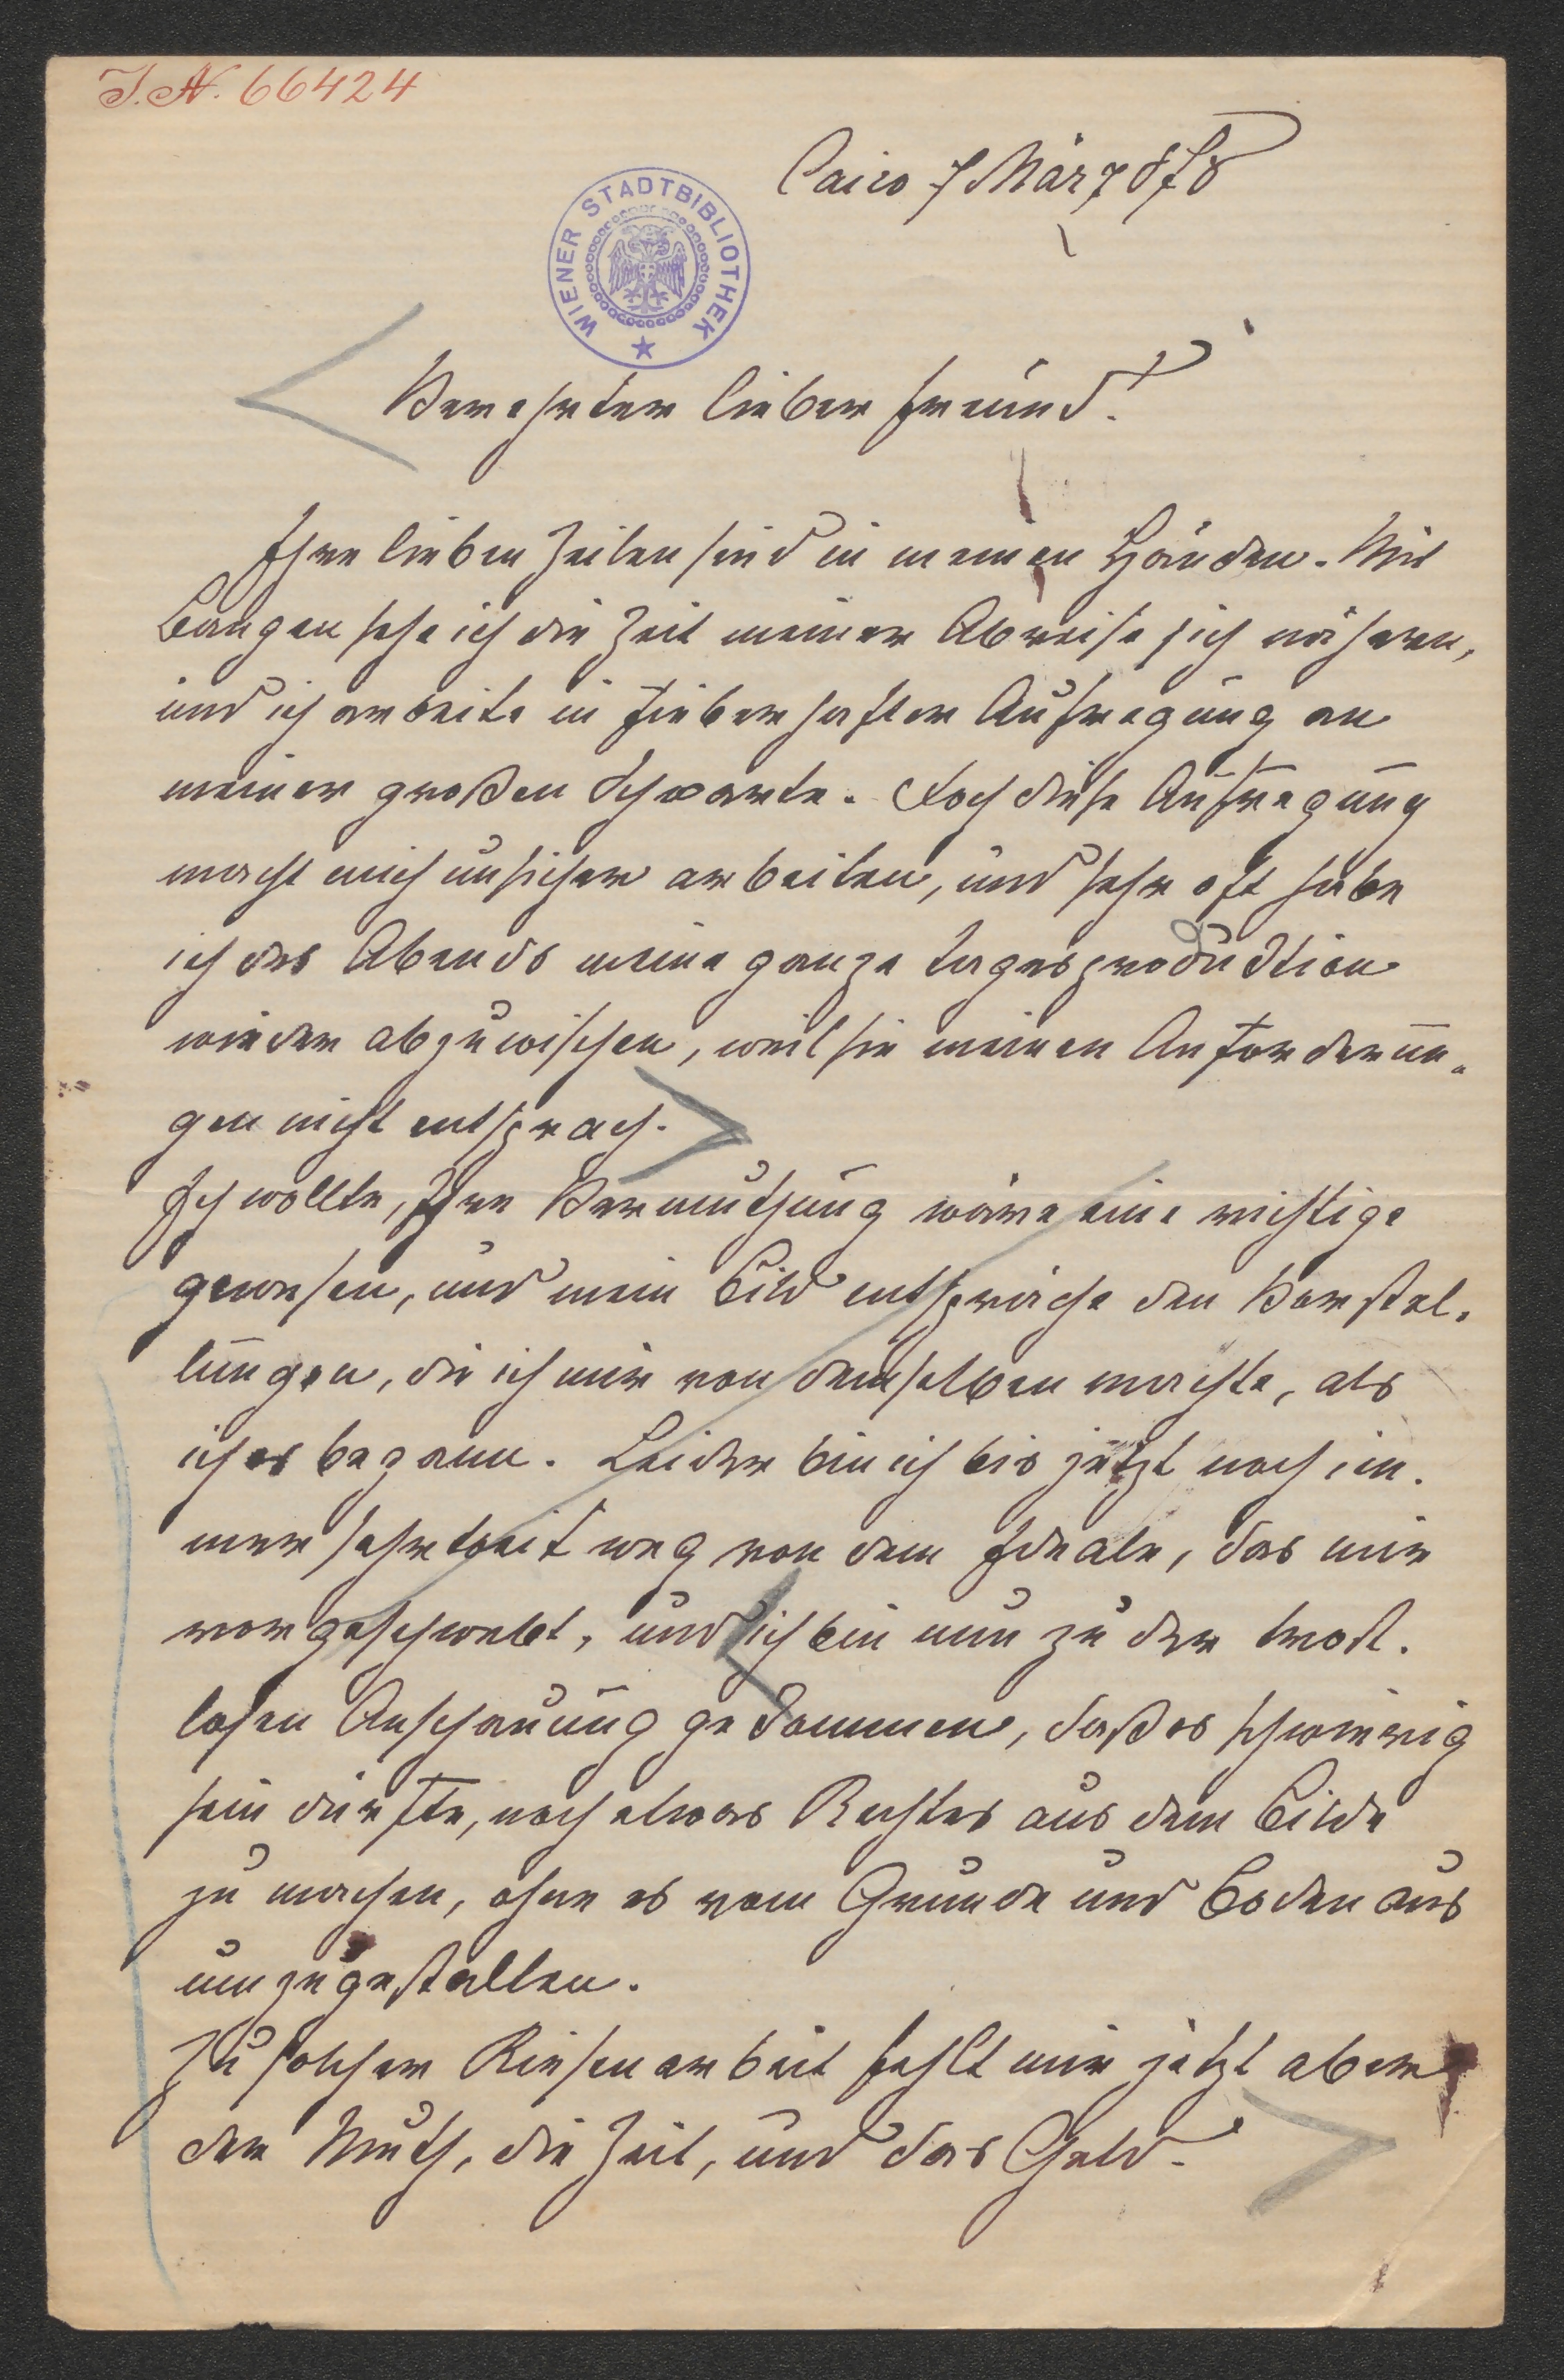 I. N. 66424
Cairo 7 März 878
WIENER STADTBIBLIOTHEK
Verehrter lieber Freund!
Ihre lieben Zeilen sind in meinen Händen. Mit
Bangen sehe ich die Zeit meiner Abreise sich nähern,
und ich arbeite in fieberhafter Aufregung an
meiner großen Schwarte. Doch diese Aufregung
macht mich unsicher arbeiten, und sehr oft habe
ich des Abends meine ganze Tagesproduktion
wieder abzuwischen, weil sie meinen Anforderun-
gen nicht entsprach.
Ich wollte, Ihre Vermuthung wäre eine richtige
gewesen, und mein Bild entspräche den Vorstel-
lungen, die ich mir von demselben machte, als
ich es begann. Leider bin ich bis jetzt noch im-
mer sehr weit weg von dem Ideale, das mir
vorgeschwebt, und ich bin nun zu der trost-
losen Anschauung gekommen, daß es schwierig
sein dürfte, noch etwas Rechtes aus dem Bilde
zu machen, ohne es vom Grunde und Boden aus
umzugestalten.
Zu solcher Riesenarbeit fehlt mir jetzt aber
der Muth, die Zeit, und das Geld.